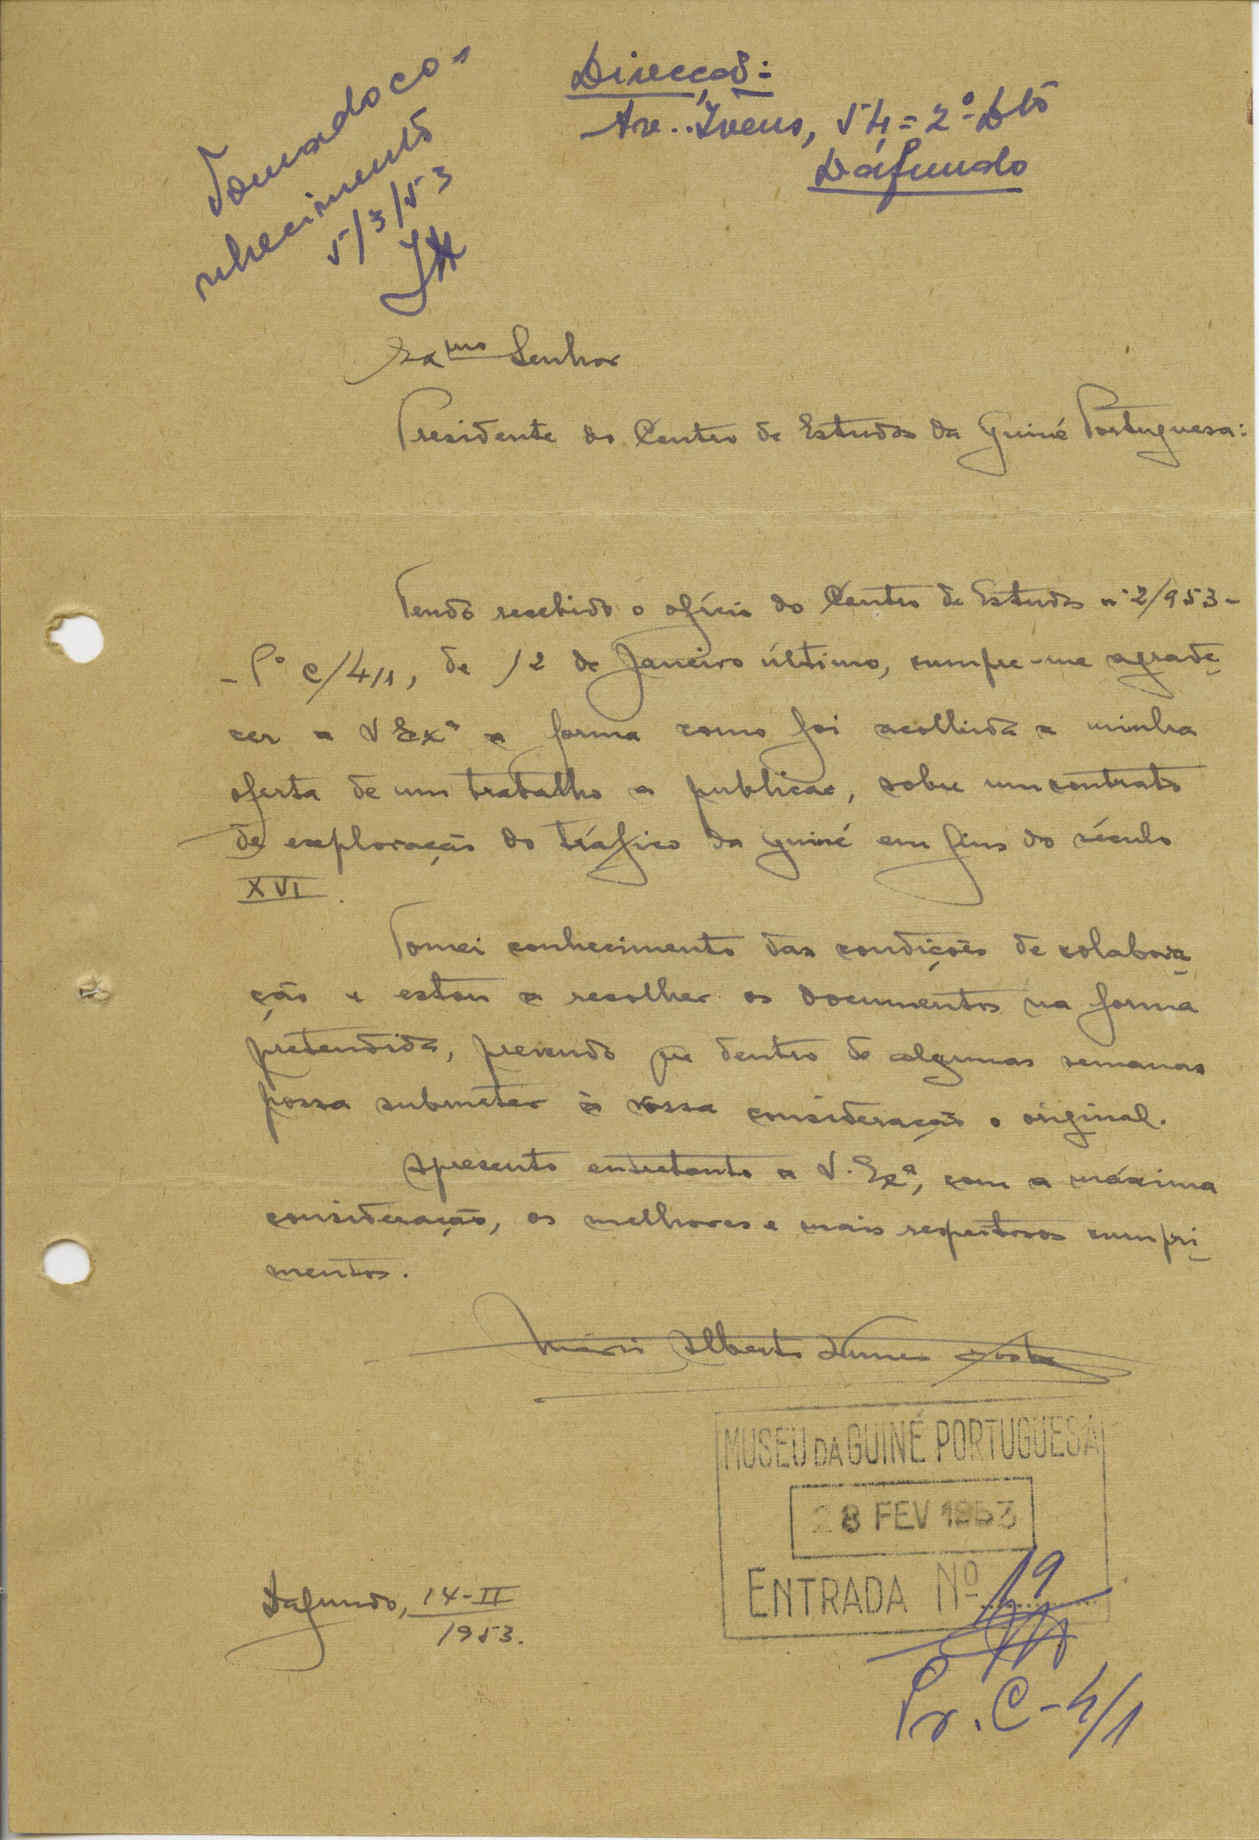 Tomado co-
nhecimento
5/3/53
Direcção:
Av. Ivens, 54=2º Dtº
Dáfundo
Exmo Senhor
Presidente do Centro de Estudos da Guiné Portuguesa:
Tendo recebido o ofício do Centro de Estudos nº 2/953-
- Pº C/4/1, de 12 de Janeiro último, cumpre-me agrade-
cer a V Exª a forma como foi acolhida a minha
oferta de um trabalho a publicar, sobre um contrato
de exploração do tráfico da Guiné em fins do século
XVI.
Tomei conhecimento das condições de colabora-
ção e estou a recolher os documentos na forma
pretendida, prevendo que dentro de algumas semanas
possa submeter à vossa consideração o original.
Apresento entretanto a V. Exª, com a máxima
consideração, os melhores e mais respeitosos cumpri-
mentos.
Mário Alberto Nunes Costa
MUSEU DA GUINÉ PORTUGUESA
28 FEV 1953
ENTRADA Nº 19
Dafundo, 14-II
1953.
Pr. C-4/1